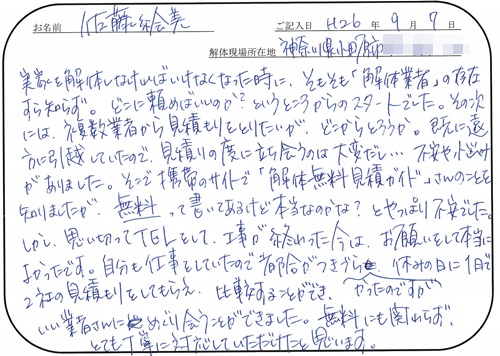 お名前 佐藤絵美 ご記入日 H26年 9月 7日
解体現場所在地 神奈川県小田原市
実家を解体しなければいけなくなった時に、そもそも「解体業者」の存在
すら知らず。どこに頼めばいいのか?というところからのスタートでした。その次
には、複数業者から見積もりをとりたいが、どこからとろうか。既に遠
方に引越していたので、見積りの度に立ち会うのは大変だし…不安や悩み
がありました。そこで携帯のサイトで「解体無料見積ガイド」さんのことを
知りましたが、無料って書いてあるけど本当なのかな?とやっぱり不安でした。
しかし、思い切ってTELをして、工事が終わった今は、お願いをして本当に
よかったです。自分も仕事をしていたので都合がつきづらかったのですが 休みの日に1日で
2社の見積もりをしてもらえ、比較することができ、
いい業者さんにめぐり会うことができました。無料にも関わらず、
とても丁寧に対応していただけたと思います。